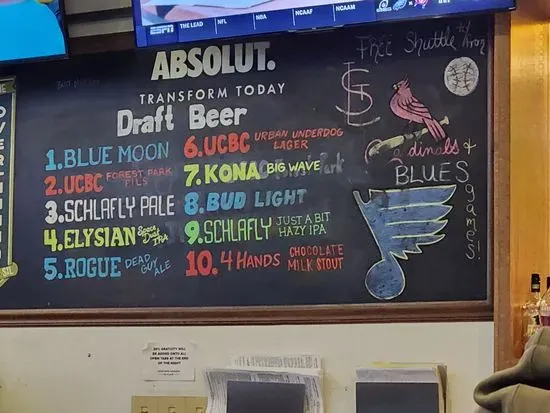 ESPN THE LEAD NFL NBA NCAAF NCAAM
ABSOLUT.
TRANSFORM TODAY
Draft Beer
1. BLUE MOON
2. UCBC FOREST PARK PILS
3. SCHLAFLY PALE
4. ELYSIAN Space Dust IPA
5. ROGUE DEAD GUY ALE
6. UCBC URBAN UNDERDOG LAGER
7. KONA BIG WAVE
8. BUD LIGHT
9. SCHLAFLY JUST A BIT HAZY IPA
10. 4 HANDS CHOCOLATE MILK STOUT
Free Shuttle
STL
Cardinals &
BLUES
games!
20% GRATUITY WILL
BE ADDED ONTO ALL
OPEN TABS AT THE END
OF THE NIGHT